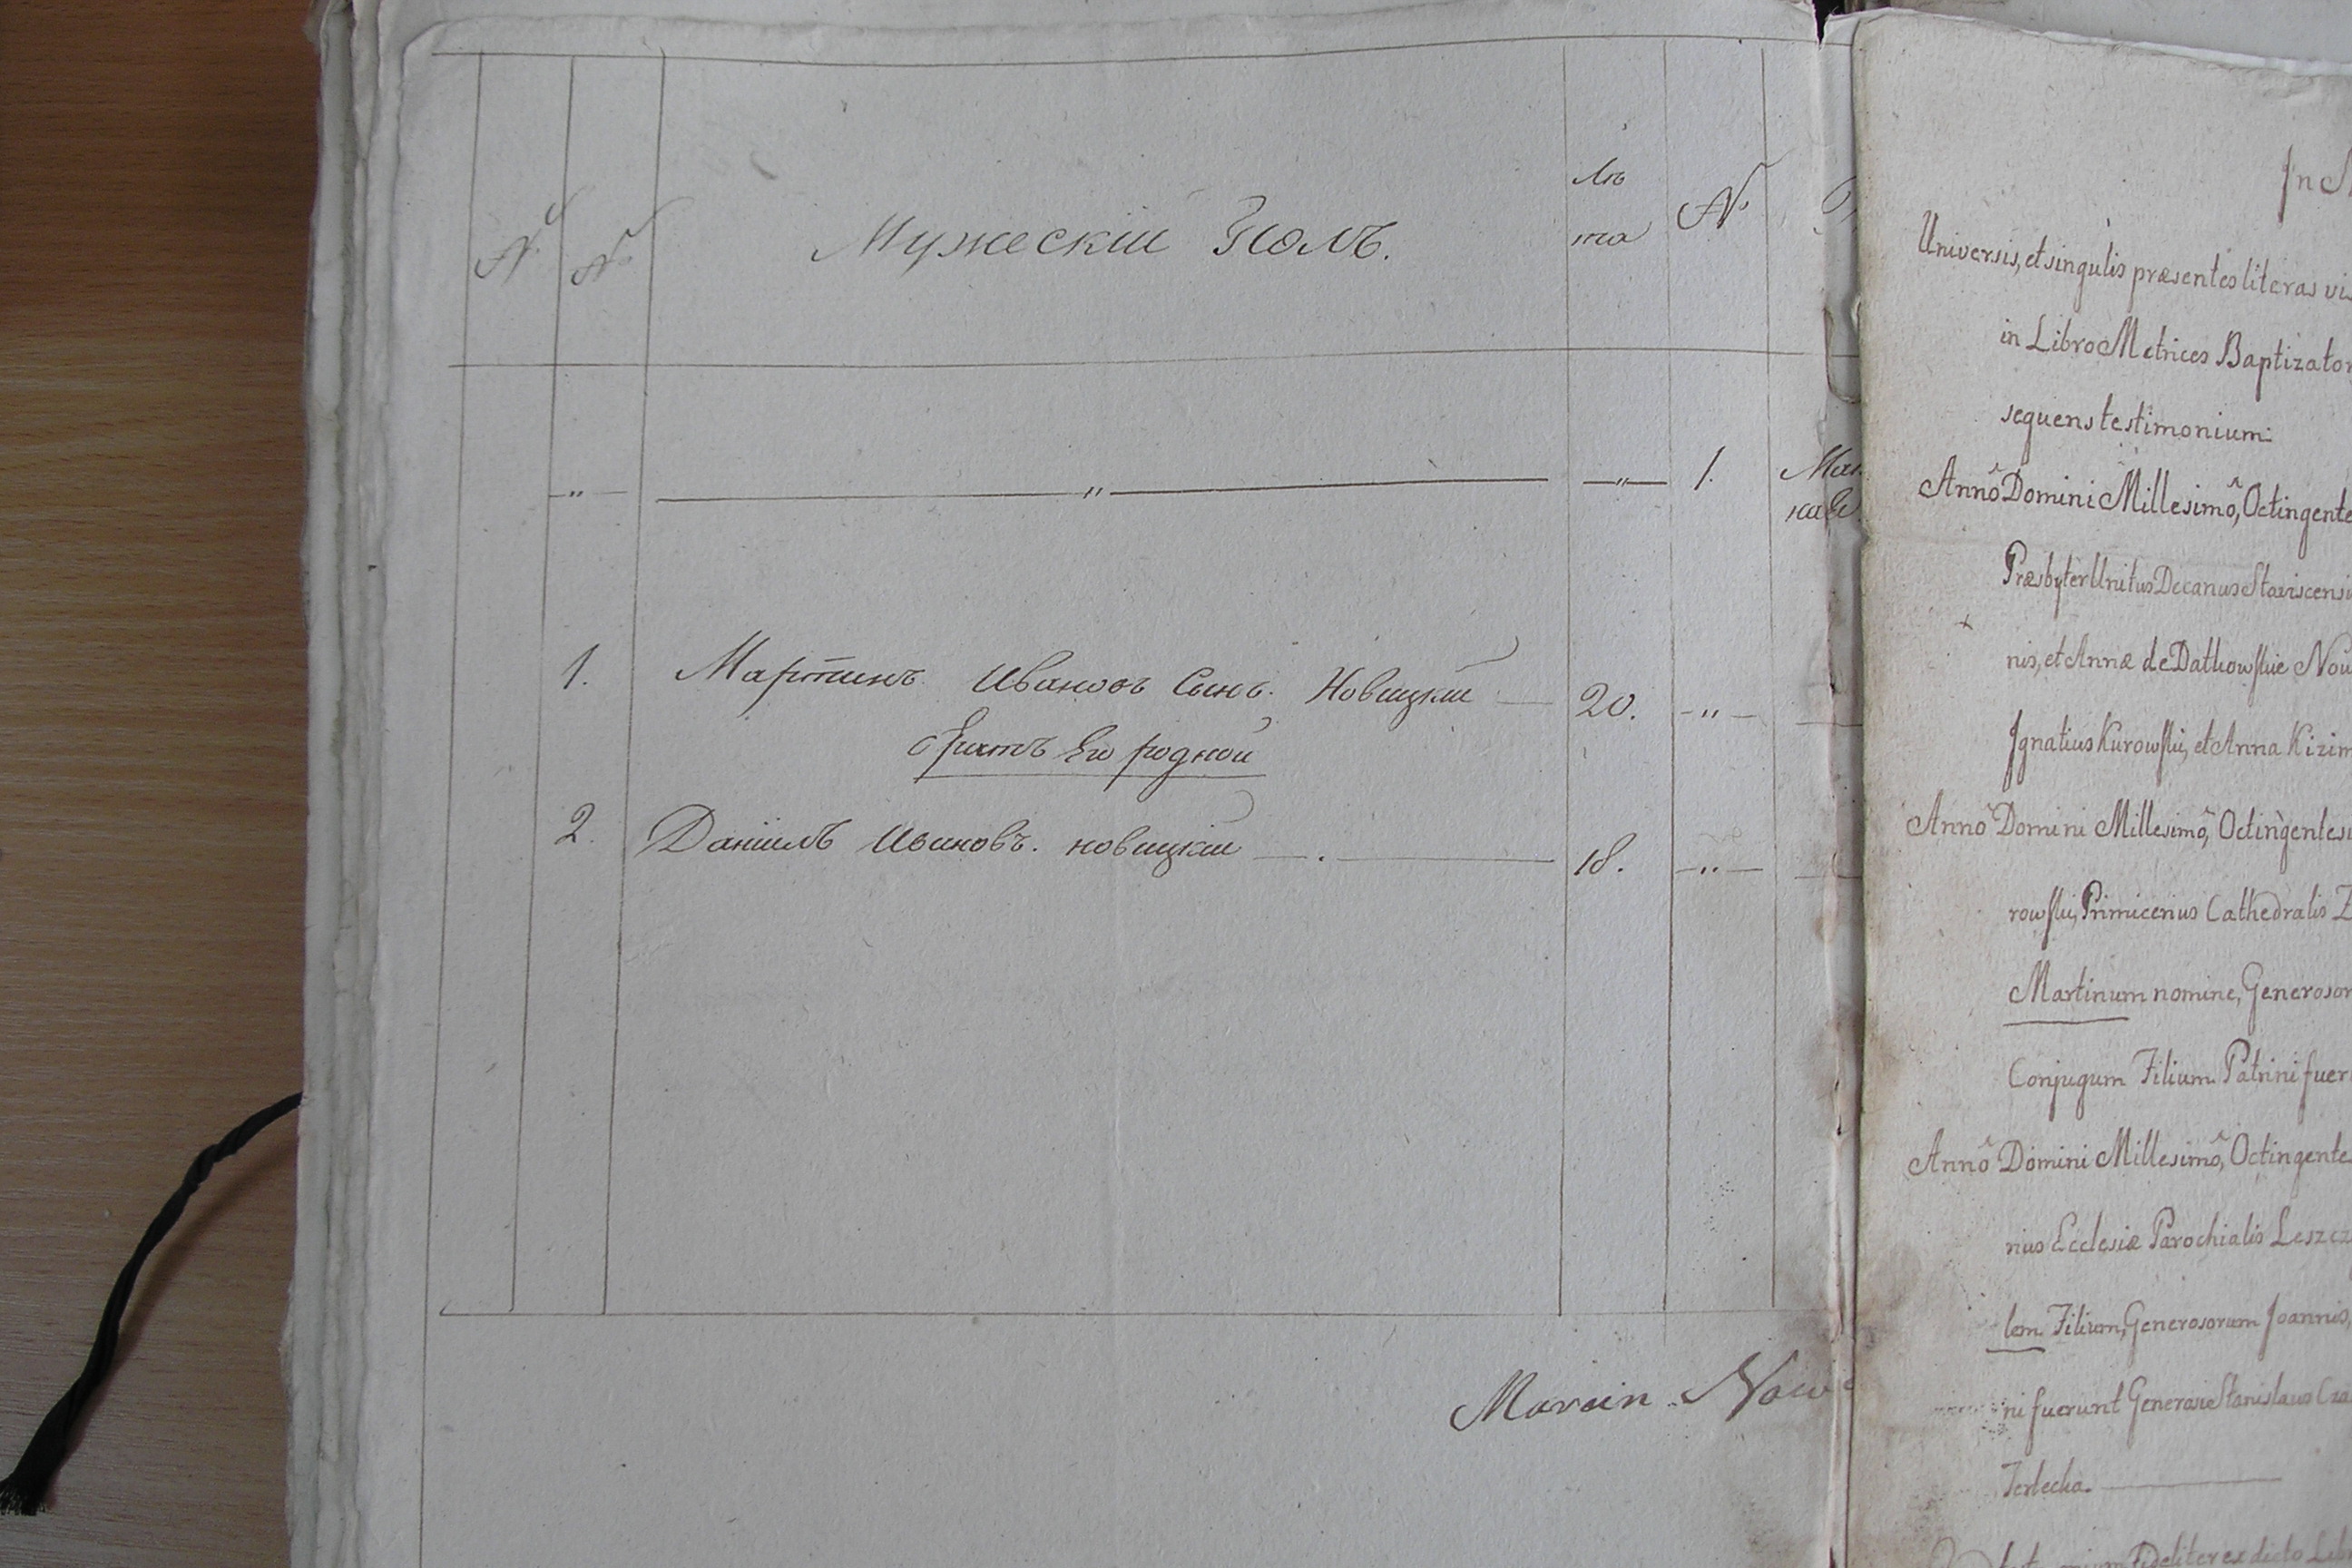 № № Мужескiй Полъ. лѣ та №
„ „ „ 1. Мак
1. Мартинъ Ивановъ Сынъ. Новицкiй 20. „
братъ Его родной
2. Данiилъ Ивановъ. новицкiй 18. „
Marcin Now
In
Universis, et singulis præsentes literas
in Libro Metrices Baptizator
sequens testimonium:
Annô Domini Millesimô, Octingente
Præsbyter Unitus Decanus Staviscensi
nis, et Annæ de Datkowskie Now
Ignatius Kurowski, et Anna Kizim
Annô Domini Millesimô, Octingentesi
rowski, Primicerius Cathedralis
Martinum nomine, Generosor
Conjugum Filium. Patrini fuer
Annô Domini Millesimô, Octingente
rius Ecclesiæ Parochialis Leszcz
lem Filium, Generosorum Joannis,
ni fuerunt Generosi Stanislaus
Terlecka.